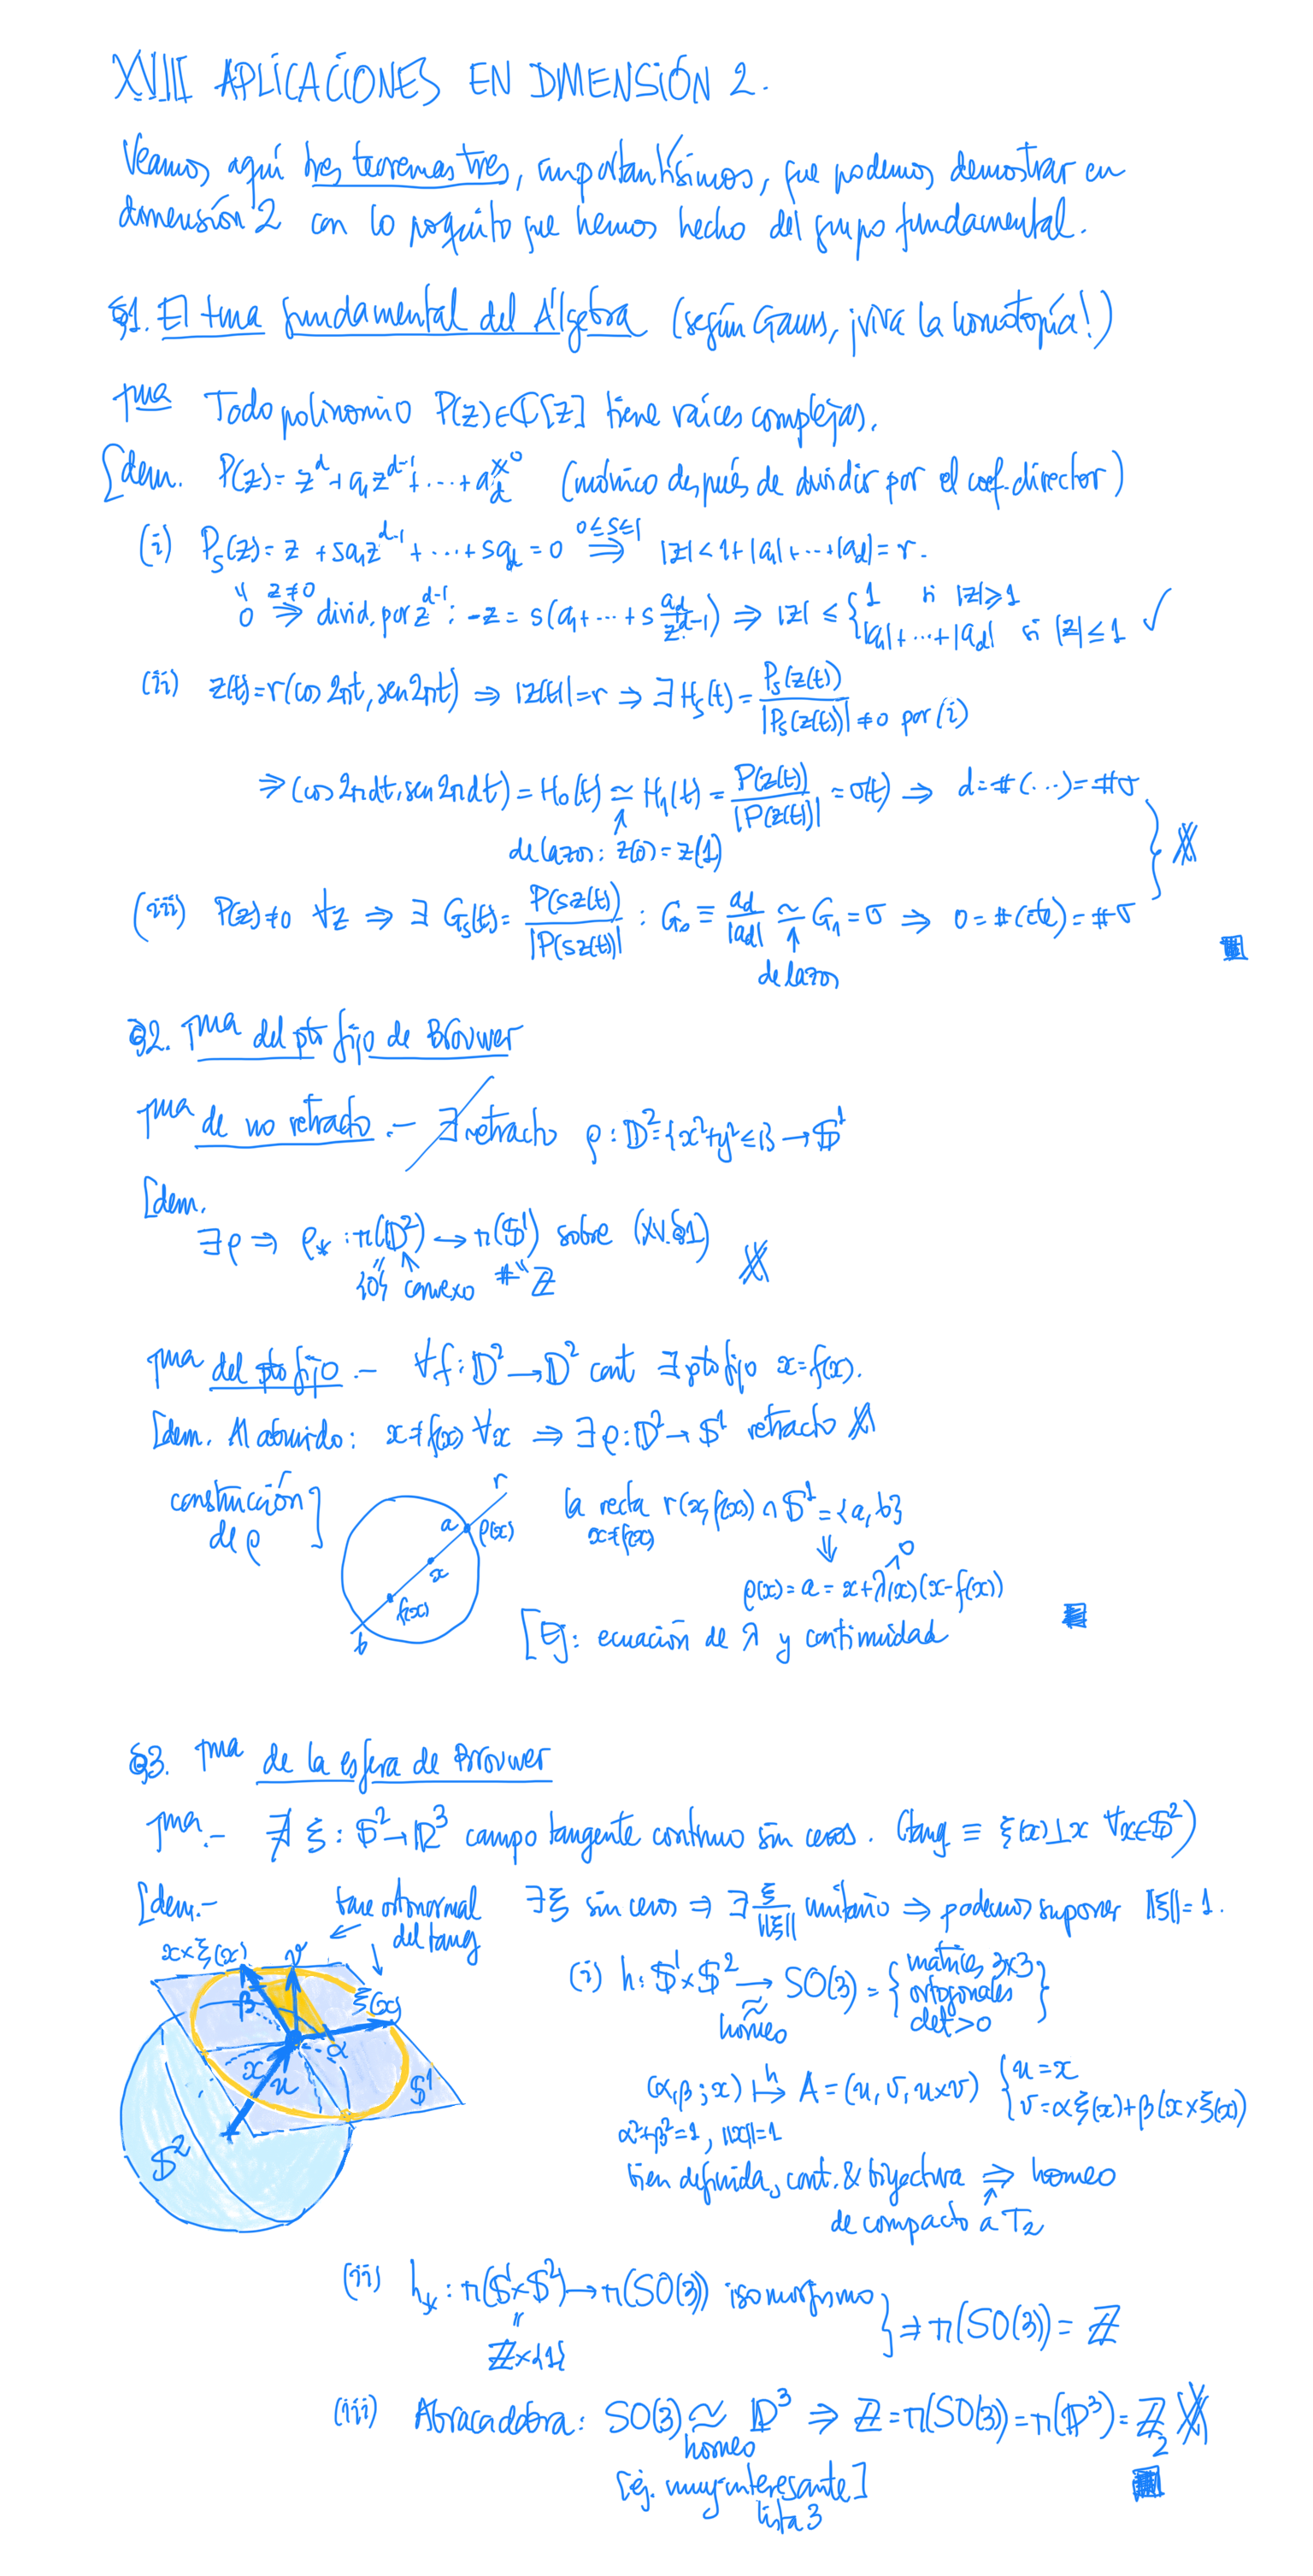 XVIII APLICACIONES EN DIMENSIÓN 2.
Veamos aquí tres teoremas tres, importantísimos, que podemos demostrar en
dimensión 2 con lo poquito que hemos hecho del grupo fundamental.
§1. El tma fundamental del Álgebra (según Gauss, ¡viva la homotopía!)
Tma Todo polinomio P(z)∈ℂ[z] tiene raíces complejas.
[dem. P(z) = z^d + a₁z^{d-1} + ... + a_d ≠0 (mónico después de dividir por el coef. director)
(i) P_s(z) = z + sa₁z^{d-1} + ... + sa_d = 0 ⇒ |z| < 1+|a₁|+...+|a_d| = r.
0≤s≤1
0 ⇒ divid. por z^{d-1}: -z = s(a₁ + ... + s a_d/z^{d-1}) ⇒ |z| ≤ { 1 si |z|≥1
z≠0
|a₁|+...+|a_d| si |z|≤1 ✓
(ii) z(t) = r(cos 2πt, sen 2πt) ⇒ |z(t)| = r ⇒ ∃ H_s(t) = P_s(z(t)) / |P_s(z(t))| ≠0 por (i)
⇒ (cos 2πdt, sen 2πdt) = H₀(t) ≃ H₁(t) = P(z(t)) / |P(z(t))| = σ(t) ⇒ d = #(...) = #σ
de lazos: z(0) = z(1)
(iii) P(z)≠0 ∀z ⇒ ∃ G_s(t) = P(sz(t)) / |P(sz(t))| : G₀ ≡ a_d/|a_d| ≃ G₁ = σ ⇒ 0 = #(cte) = #σ
de lazos
§2. Tma del pto fijo de Brouwer
Tma de no retracto.- ∄ retracto ρ: 𝔻² = {x²+y²≤1} → 𝕊¹
[dem.
∃ρ ⇒ ρ_* : π(𝔻²) → π(𝕊¹) sobre (XV.§1)
{0} convexo # ℤ
Tma del pto fijo.- ∀f: 𝔻² → 𝔻² cont ∃ pto fijo x = f(x).
[dem. Al absurdo: x≠f(x) ∀x ⇒ ∃ρ: 𝔻² → 𝕊¹ retracto
construcción
de ρ]
r
a
ρ(x)
x
f(x)
b
la recta r(x, f(x)) ∩ 𝕊¹ = {a, b}
x≠f(x)
⇓
0
ρ(x) = a = x + λ(x)(x - f(x))
[Ej: ecuación de λ y continuidad
§3. Tma de la esfera de Brouwer
Tma.- ∄ ξ: 𝕊² → ℝ³ campo tangente continuo sin ceros. (tang ≡ ξ(x)⊥x ∀x∈𝕊²)
[dem.- base ortonormal
del tang
∃ξ sin ceros ⇒ ∃ ξ/‖ξ‖ unitario ⇒ podemos suponer ‖ξ‖ = 1.
x×ξ(x)
v
ξ(x)
β
α
x
u
𝕊¹
𝕊²
(i) h: 𝕊¹×𝕊² → SO(3) = { matrices 3×3
ortogonales
det>0 }
≈
homeo
(α,β; x) ↦ A = (u, v, u×v) { u = x
h
v = αξ(x) + β(x×ξ(x))
α²+β²=1, ‖x‖=1
bien definida, cont. & biyectiva ⇒ homeo
de compacto a T₂
(ii) h_* : π(𝕊¹×𝕊²) → π(SO(3)) isomorfismo } ⇒ π(SO(3)) = ℤ
ℤ×{1}
(iii) Abracadabra: SO(3) ≈ ℙ³ ⇒ ℤ = π(SO(3)) = π(ℙ³) = ℤ₂
homeo
[ej. muy interesante]
lista 3